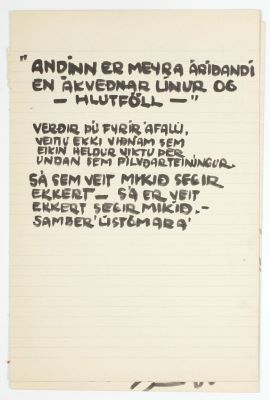 "ANDINN ER MEYRA ÁRÍÐANDI
EN ÁKVEÐNAR LÍNUR OG
— HLUTFÖLL —"
VERÐIR ÞÚ FYRIR ÁFALLI,
VEITU EKKI VIÐNÁM SEM
EIKIN HELDUR VIKTU ÞÉR
UNDAN SEM PÍLVÐARTEININGUR.
SÁ SEM VEIT MIKIÐ SEGIR
EKKERT — SÁ ER VEIT
EKKERT SEGIR MIKIÐ.-
SAMBER